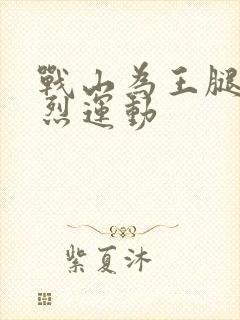 戰山為王腿
烈運動
紫夏沐